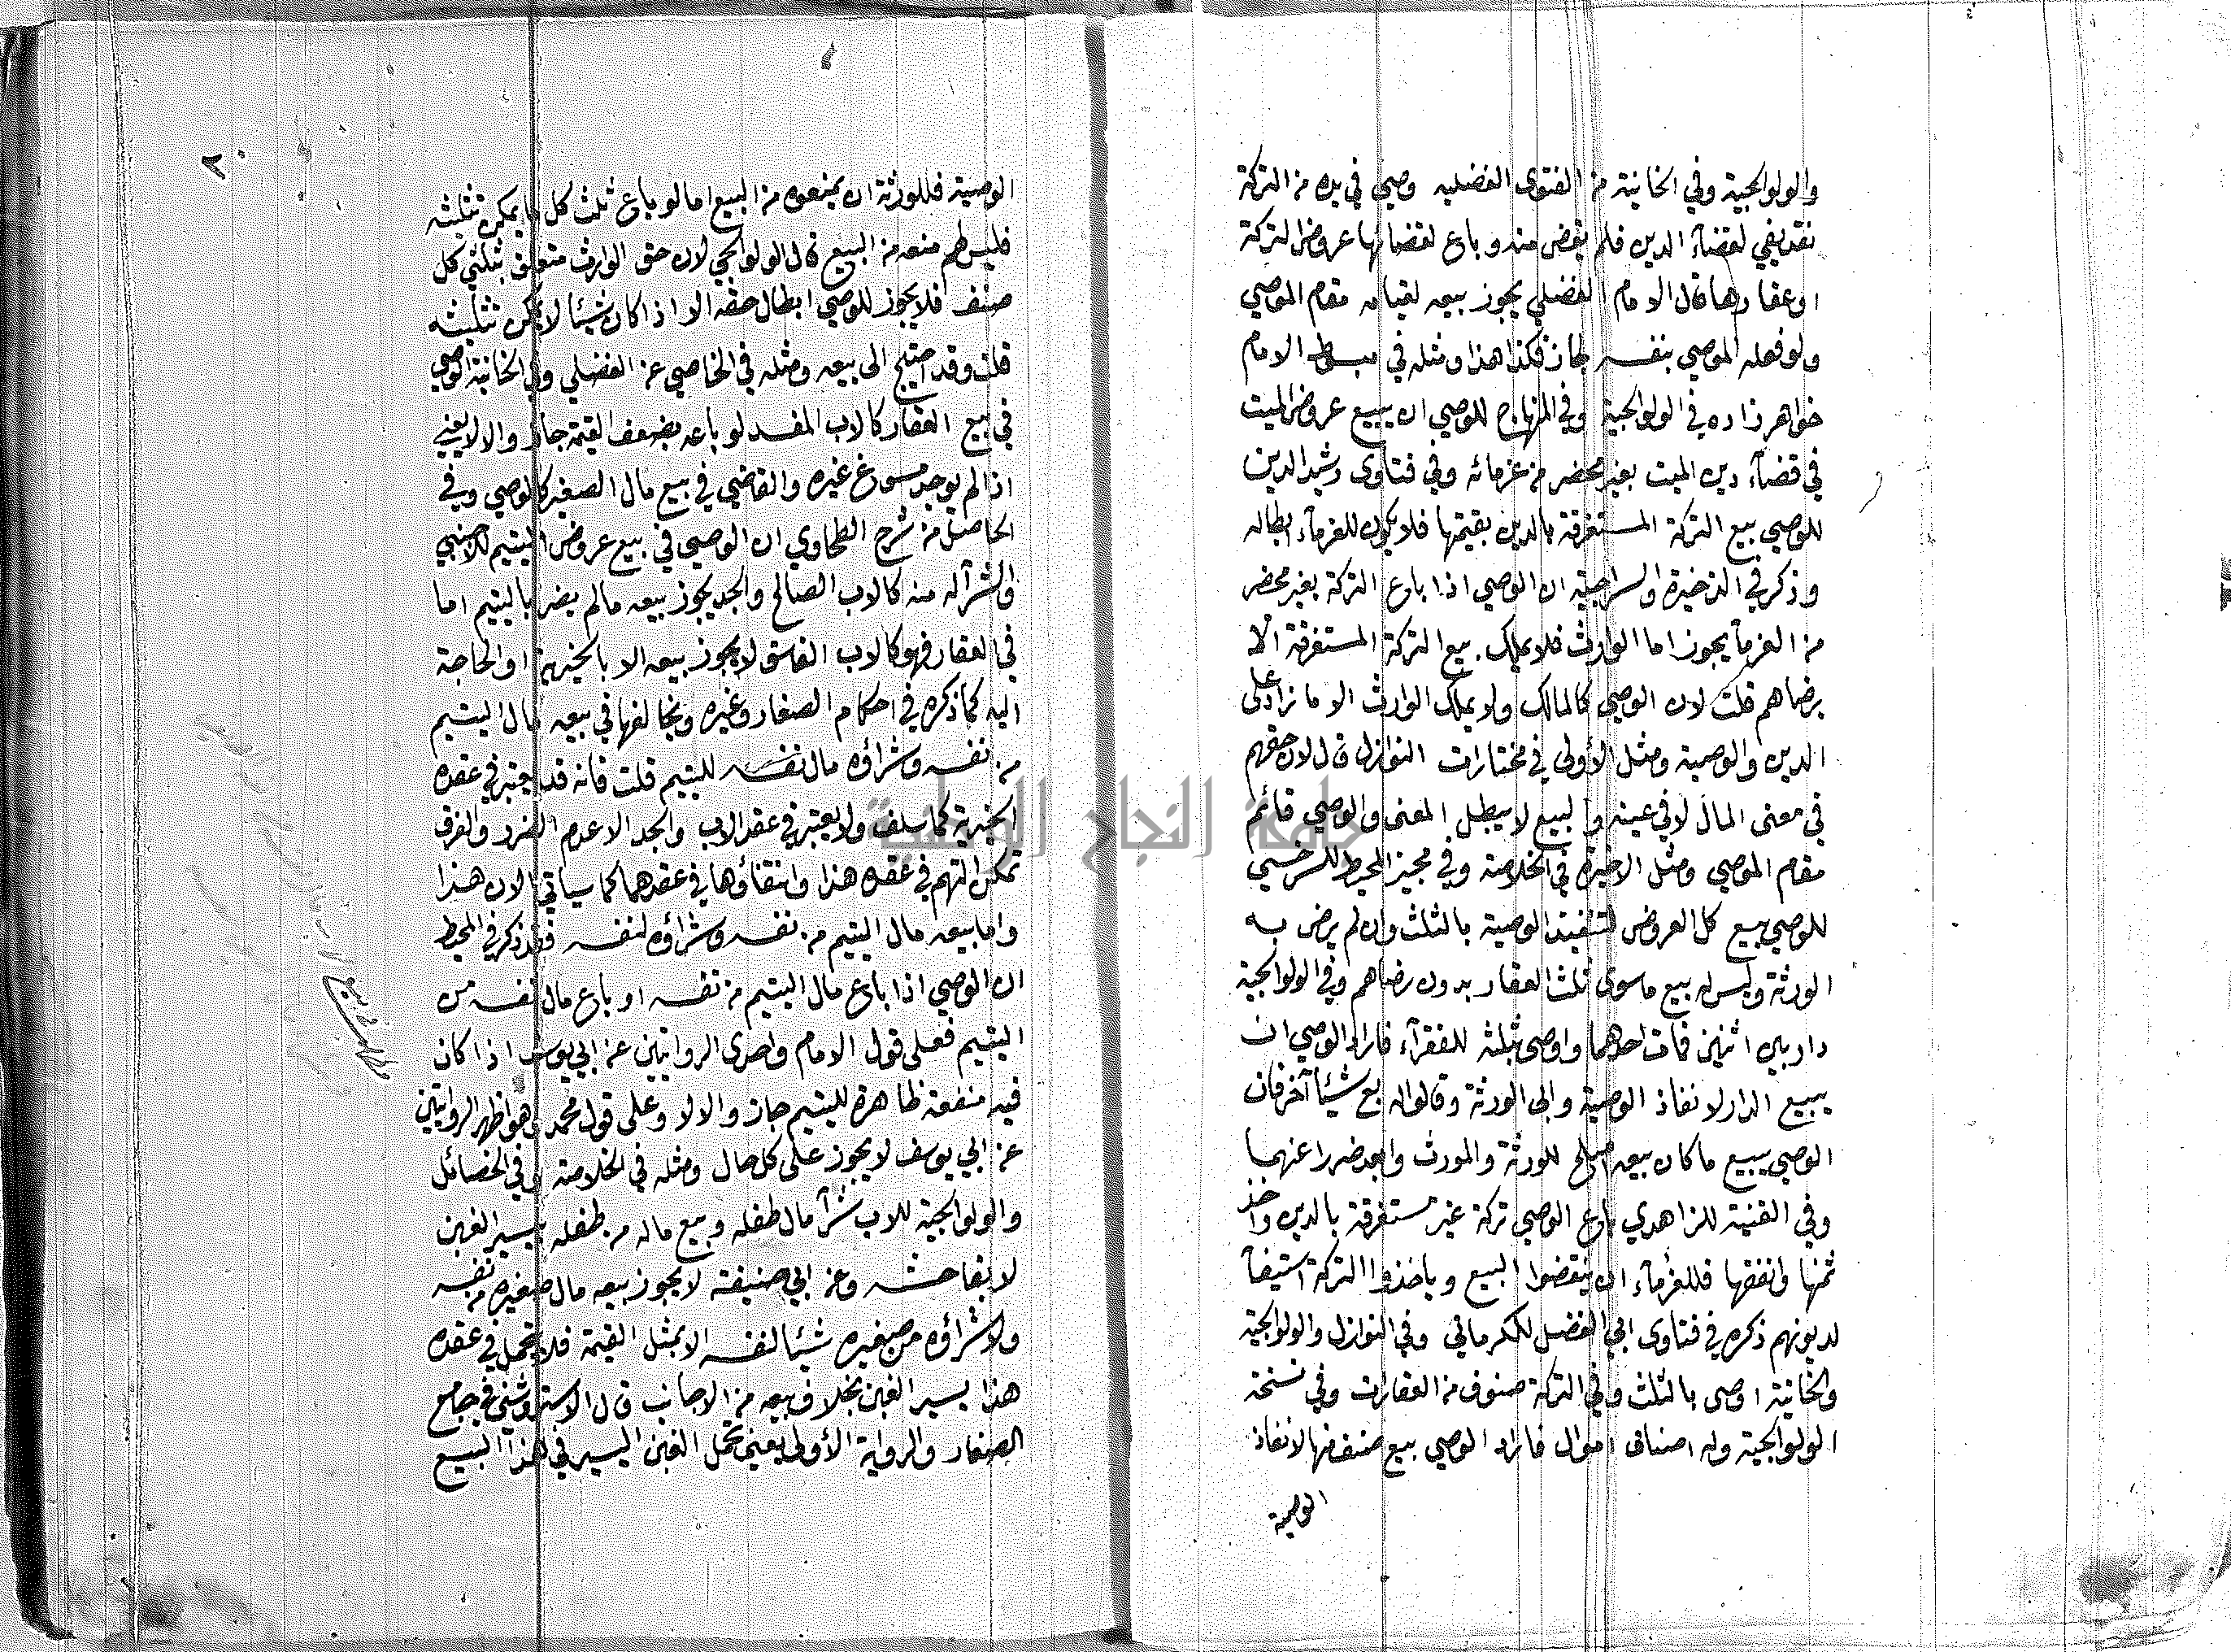 والولوالجية وفي الخانية من الفتوى الفضليه وصي في يده من التركة
نقد يفي لقضآء الدين فلم يقض منه وباع لقضائها عروض التركة
او عقارها قال الامام الفضلي يجوز بيعه لقيامه مقام الموصي
ولو فعله الموصي بنفسه لجاز فكذا هذا ومثله في مبسوط الامام
خواهر زاده في الولوالجية وفي المنهاج للوصي ان يبيع عروض الميت
في قضآء دين الميت بغير محضر من غرمائه وفي فتاوى رشيد الدين
للوصي بيع التركة المستغرقة بالدين بقيمتها فلا يكون للغرمآء ابطاله
وذكر في الذخيرة والسراجية ان الوصي اذا باع التركة بغير محضر
من الغرمآ يجوز اما الوارث فلا يملك بيع التركة المستغرقة الا
برضاهم قلت لان الوصي كالمالك ولا يملك الوارث الا ما زاد على
الدين والوصية ومثل الأولى في مختارات النوازل قال لان حقهم
في معنى المال لا في عينه والبيع لا يبطل المعنى والوصي قائم
مقام الموصي ومثل الاخيرة في الخلاصة وفي مجيز المحيط للسرخسي
للوصي بيع كل العروض لتنفيذ الوصية بالثلث وان لم يرض به
الورثة وليس له بيع ما سوى ثلث العقار بدون رضاهم وفي الولوالجية
دار بين اثنين فمات احدهما واوصى بثلثه للفقرآء فاراد الوصي ان
يبيع الدار لانفاذ الوصية وابى الورثة وقالوا له بع شيئا آخر فان
الوصي يبيع ما كان بيعه اصلح للورثة والمورث وابعد ضررا عنهما
وفي القنية للزاهدي باع الوصي تركة غير مستغرقة بالدين واخذ
ثمنها وانفقها فللغرمآء ان ينقضوا البيع وياخذوا التركة استيفآ
لديونهم ذكره في فتاوى ابي الفضل للكرماني وفي النوازل والولوالجية
والخانية اوصى بالثلث وفي التركة صنوف من العقارات وفي نسخة
الولوالجية وله اصناف اموال فاراد الوصي بيع صنف منها لانفاذ
الوصية
٢٠
الوصية فللورثة ان يمنعوه من البيع اما لو باع ثلث كل ما يمكن تثليثه
فليس لهم منعه من البيع قال الولوالجي لان حق الوارث متعلق بثلثي كل
صنف فلا يجوز للوصي ابطال حقه الا اذا كان شيئا لا يمكن تثليثه
قلت وقد احتيج الى بيعه ومثله في الخاصي عن الفضلي وفي الخانية الوصي
في بيع العقار كالاب المفسد لو باعه بضعف القيمة جاز والا لا يعني
اذا لم يوجد مسوغ غيره والقاضي في بيع مال الصغير كالوصي وفي
الحاصل من شرح الطحاوي ان الوصي في بيع عروض اليتيم للاجنبي
والشرآ له منه كالاب الصالح والجد يجوز بيعه مالم يضر باليتيم اما
في العقار فهو كالاب الفاسق لا يجوز بيعه الا بالخيرية او الحاجة
اليه كما ذكره في احكام الصغار وغيره ويخالفها في بيعه مال اليتيم
من نفسه وشراؤه مال نفسه لليتيم قلت فانه قد يعتبر في عقده
الخيرية كما سلف ولا يعتبر في عقد الاب والجد الا عدم الضرر والفرق
تمكن التهم في عقده هذا وانتفاؤها في عقدهما كما سياتي الان هذا
واما بيعه مال اليتيم من نفسه وشراؤه لنفسه فقد ذكر في المحيط
ان الوصي اذا باع مال اليتيم من نفسه او باع مال نفسه من
اليتيم فعلى قول الامام واحدى الروايتين عن ابي يوسف اذا كان
فيه منفعة ظاهرة لليتيم جاز والا لا وعلى قول محمد وهو اظهر الروايتين
عن ابي يوسف لا يجوز على كل حال ومثله في الخلاصة وفي الخصائل
والولوالجية للاب شرآ مال طفله وبيع ماله من طفله بيسير الغبن
لا بفاحشه وعن ابي حنيفة لا يجوز بيعه مال صغيره من نفسه
ولا شراؤه من صغيره شيئا لنفسه الا بمثل القيمة فلا يتحمل في عقده
هذا يسير الغبن بخلاف بيعه من الاجانب قال الاستروشني في جامع
الصغار والرواية الأولى يعني تحمل الغبن اليسير في هذا البيع
جامعة النجاح الوطنية